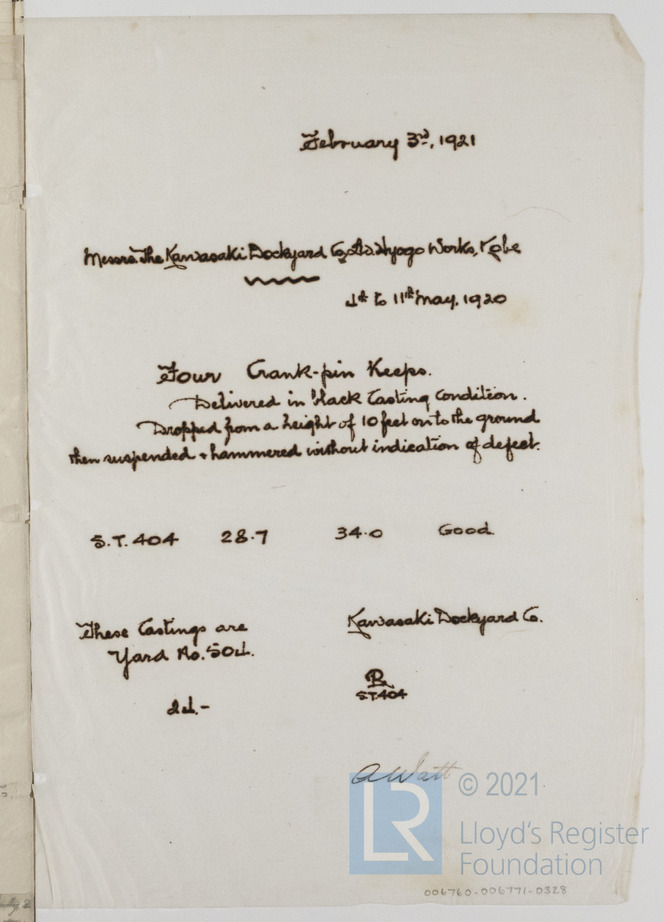 February 3rd, 1921
Messrs The Kawasaki Dockyard Co. Ltd Hyogo Works, Kobe
4th to 11th May, 1920
Four Crank-pin Keeps.
Delivered in black Casting Condition.
Dropped from a height of 10 feet on to the ground
then suspended & hammered without indication of defect.
S.T. 404 28.7 34.0 Good
These Castings are
Yard No. 504.
Kawasaki Dockyard Co.
LR
S.T.404
A Watt
© 2021
LR
Lloyd's Register
Foundation
006760-006771-0328